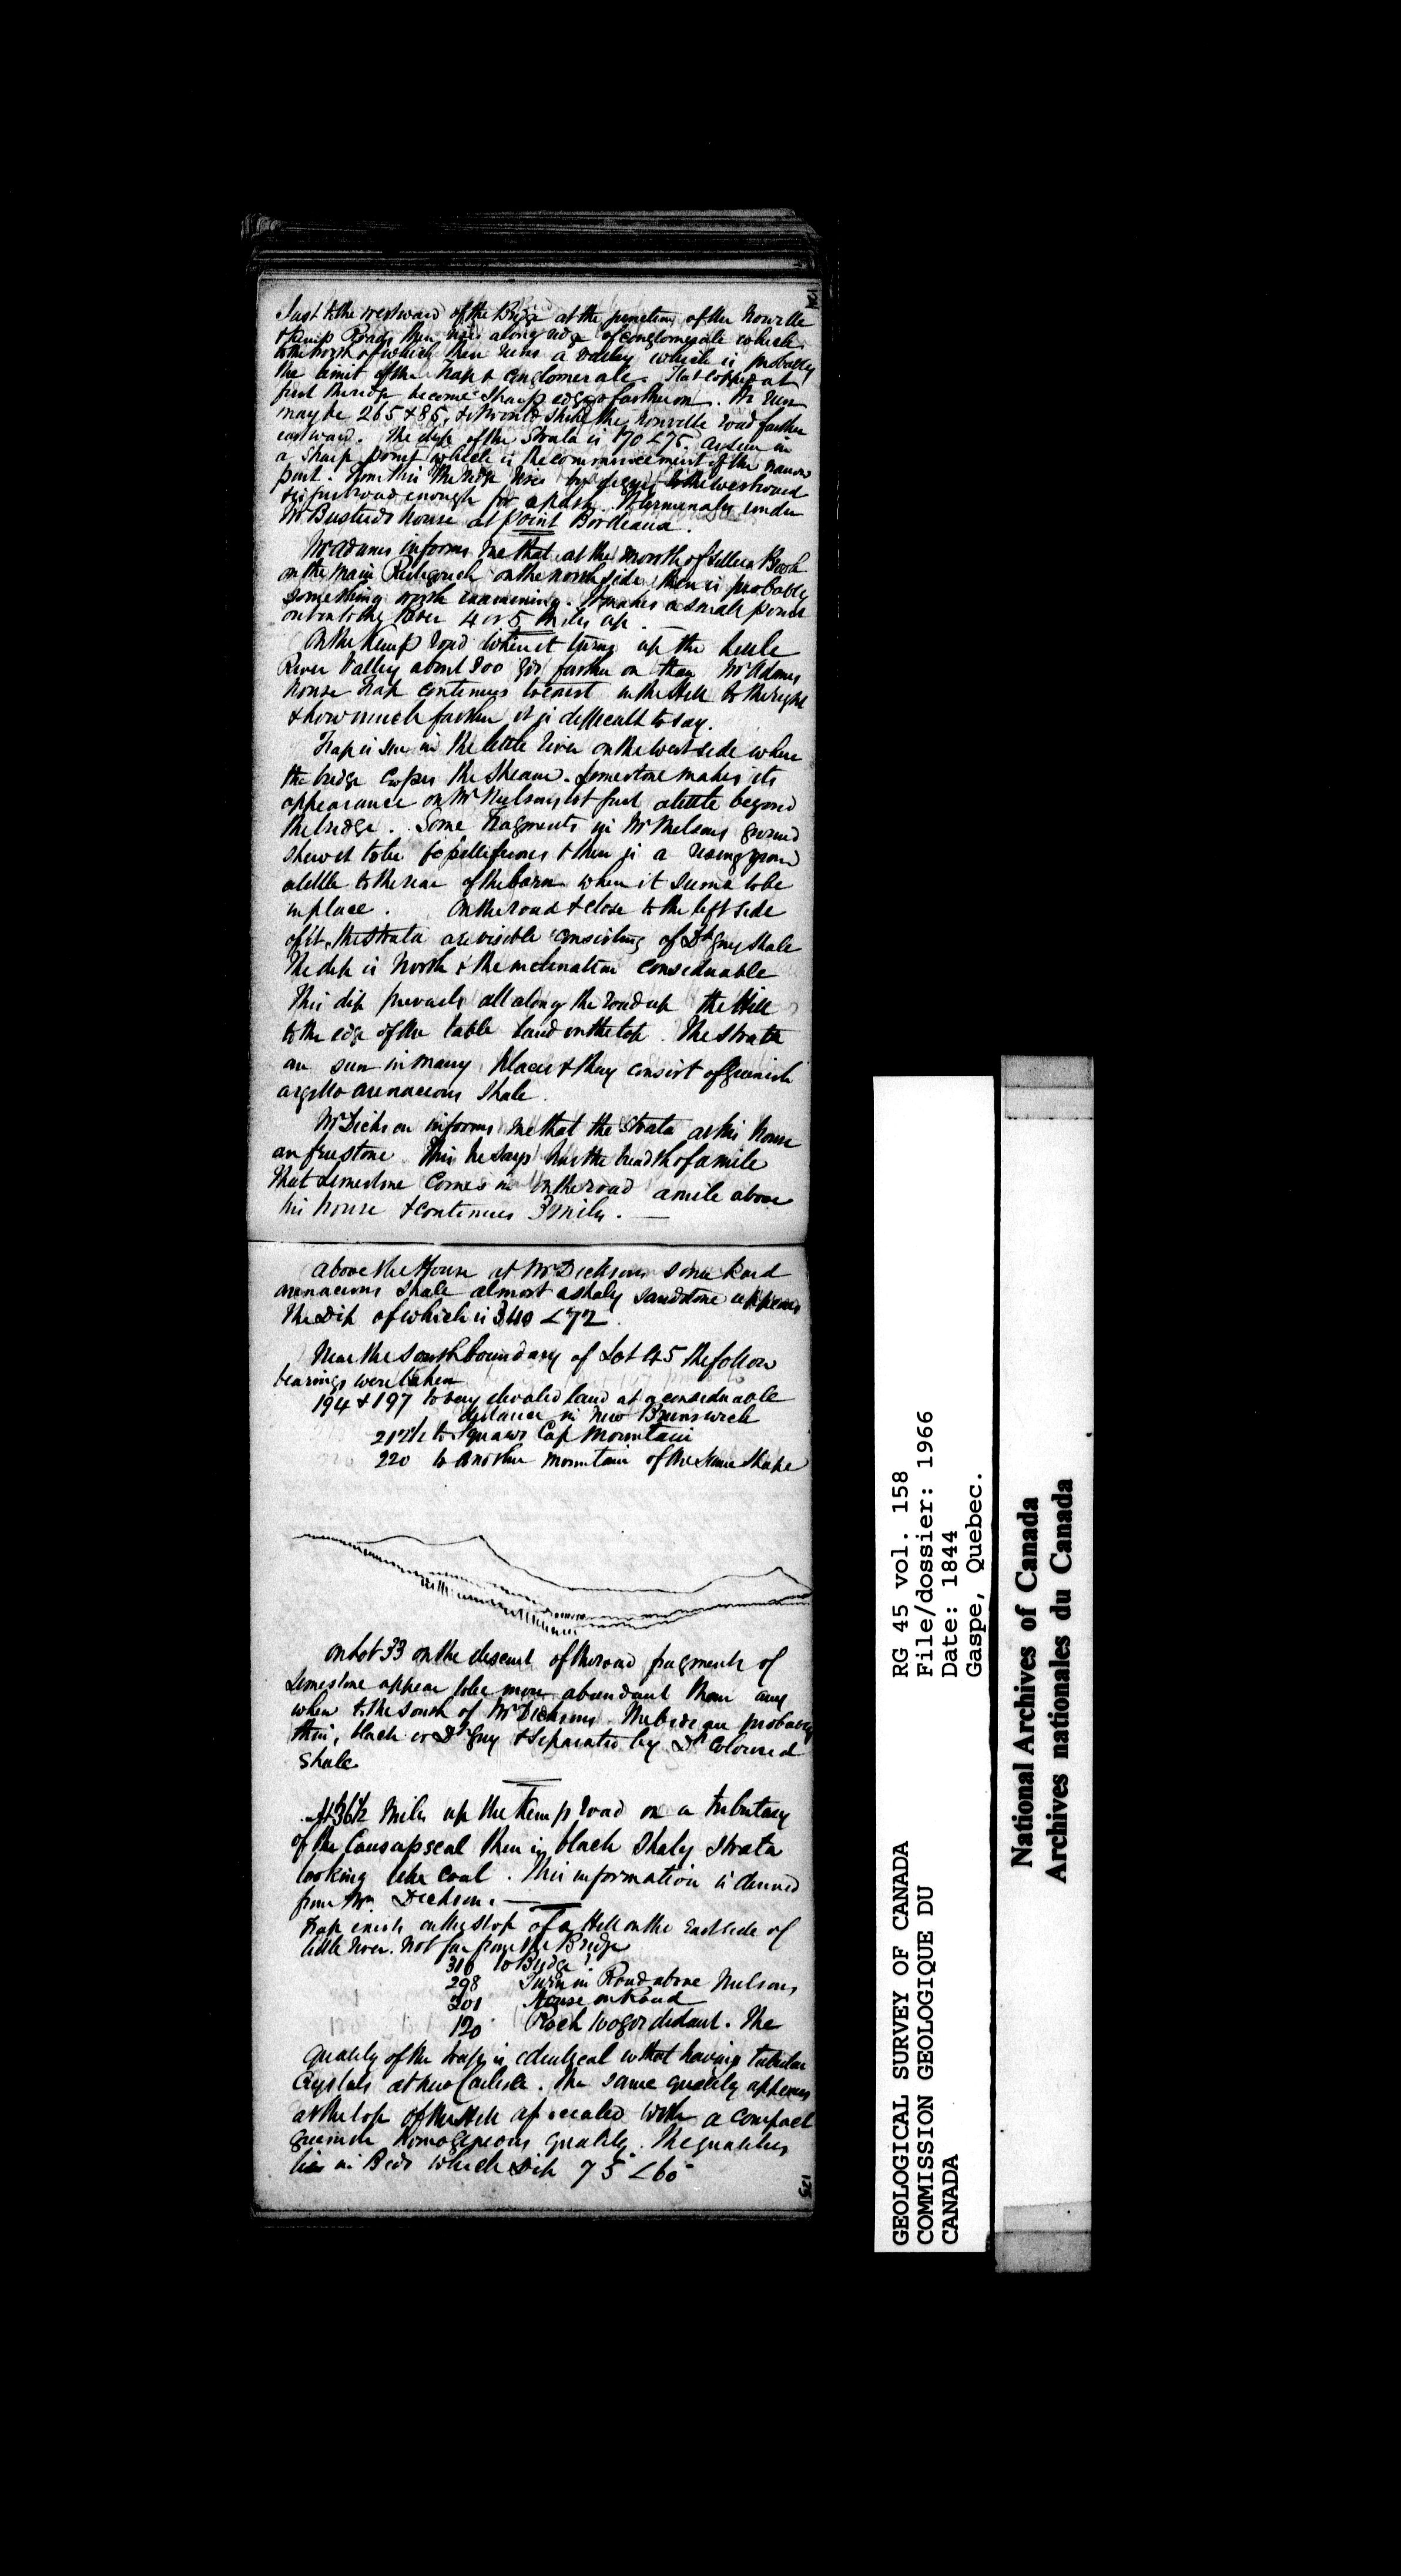 124
Just to the westward of the Bridge at the junction of the Nouvelle
& Kemp Roads there rises a long ridge of conglomerate which
to the north of which there runs a valley which is probably
the limit of the trap & conglomerate. Flat topped at
first the ridge becomes sharp edged farther on. It runs
may be 265 & 85, & would strike the Nouvelle road farther
eastward. The dip of the strata is 170 <75. as seen in
a sharp point which is the commencement of the narrow
part. From this the ridge rises by degrees to the westward
& is just broad enough for a path. It terminates under
Mr Busteeds house at point Bordeaux.
Mr Adams informs me that at the mouth of Brook
on the main Restigouch on the north side there is probably
something worth examining. It makes a small point
out into the River 4 or 5 miles up. —
On the Kemp road when it turns up the little
River Valley about 300 yds farther on than Mr Adams
house trap continues to exist in the Hill to the right
& how much farther it is difficult to say.
Trap is seen in the little River on the west side where
the bridge crosses the stream. Limestone makes its
appearance on Mr Nelsons lot just a little beyond
the bridge. Some fragments in Mr Nelsons ground
shew it to be fossiliferous & there is a rising ground
a little to the rear of the barn where it seems to be
in place. On the road & close to the left side
of it, the strata are visible consisting of Dk grey shale
The dip is North & the inclination considerable
This dip prevails all along the road up the Hill
to the edge of the table land on the top. The strata
are seen in many places & they consist of greenish
argillo arenaceous shale.
Mr Dickson informs me that the strata at his house
are freestone This he says has the breadth of a mile
That Limestone comes in on the road a mile above
his house & continues 3 miles. —
above the House at Mr Dicksons some hard
arenaceous shale almost a shaly sandstone appears
The Dip of which is 340 <72
Near the south boundary of Lot 45 the follow
bearings were taken
194 & 197 to very elevated land at a considerable
distance in New Brunswick
212½ to Squaws Cap Mountain
220 to another mountain of the same shape
On Lot 33 on the descent of the road fragments of
Limestone appear to be more abundant than any
where to the south of Mr Dicksons. The beds are probably
thin, black or Dk Grey & separated by Dk coloured
shale
At 36½ miles up the Kemp road on a tributary
of the Causapscal there is black shaly strata
looking like coal. This information is derived
from Mr Dickson. —
Trap exists on the slope of a Hill on the East side of
little River. not far from the Bridge
310 to Bridge
298 Turn in Road above Nelsons
201 House on Road
120 Rock 100 yds distant. The
quality of the trap is identical with that having tabular
crystals at New Carlisle. The same quality appears
at the top of the Hill associated with a compact
greenish homogeneous quality. The qualities
lie in Beds which dip 75° <60°
125
RG 45 vol. 158
File/dossier: 1966
Date: 1844
Gaspe, Quebec.
GEOLOGICAL SURVEY OF CANADA
COMMISSION GEOLOGIQUE DU
CANADA
National Archives of Canada
Archives nationales du Canada